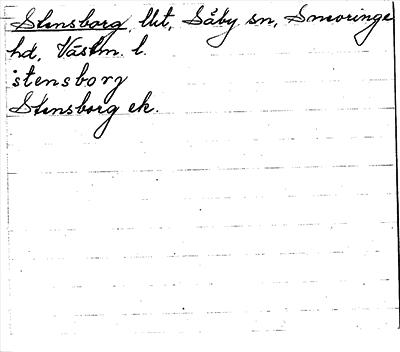 Stensborg, lht, Säby sn, Snevringe
hd, Västm. l.
stensborg
Stensborg ek.